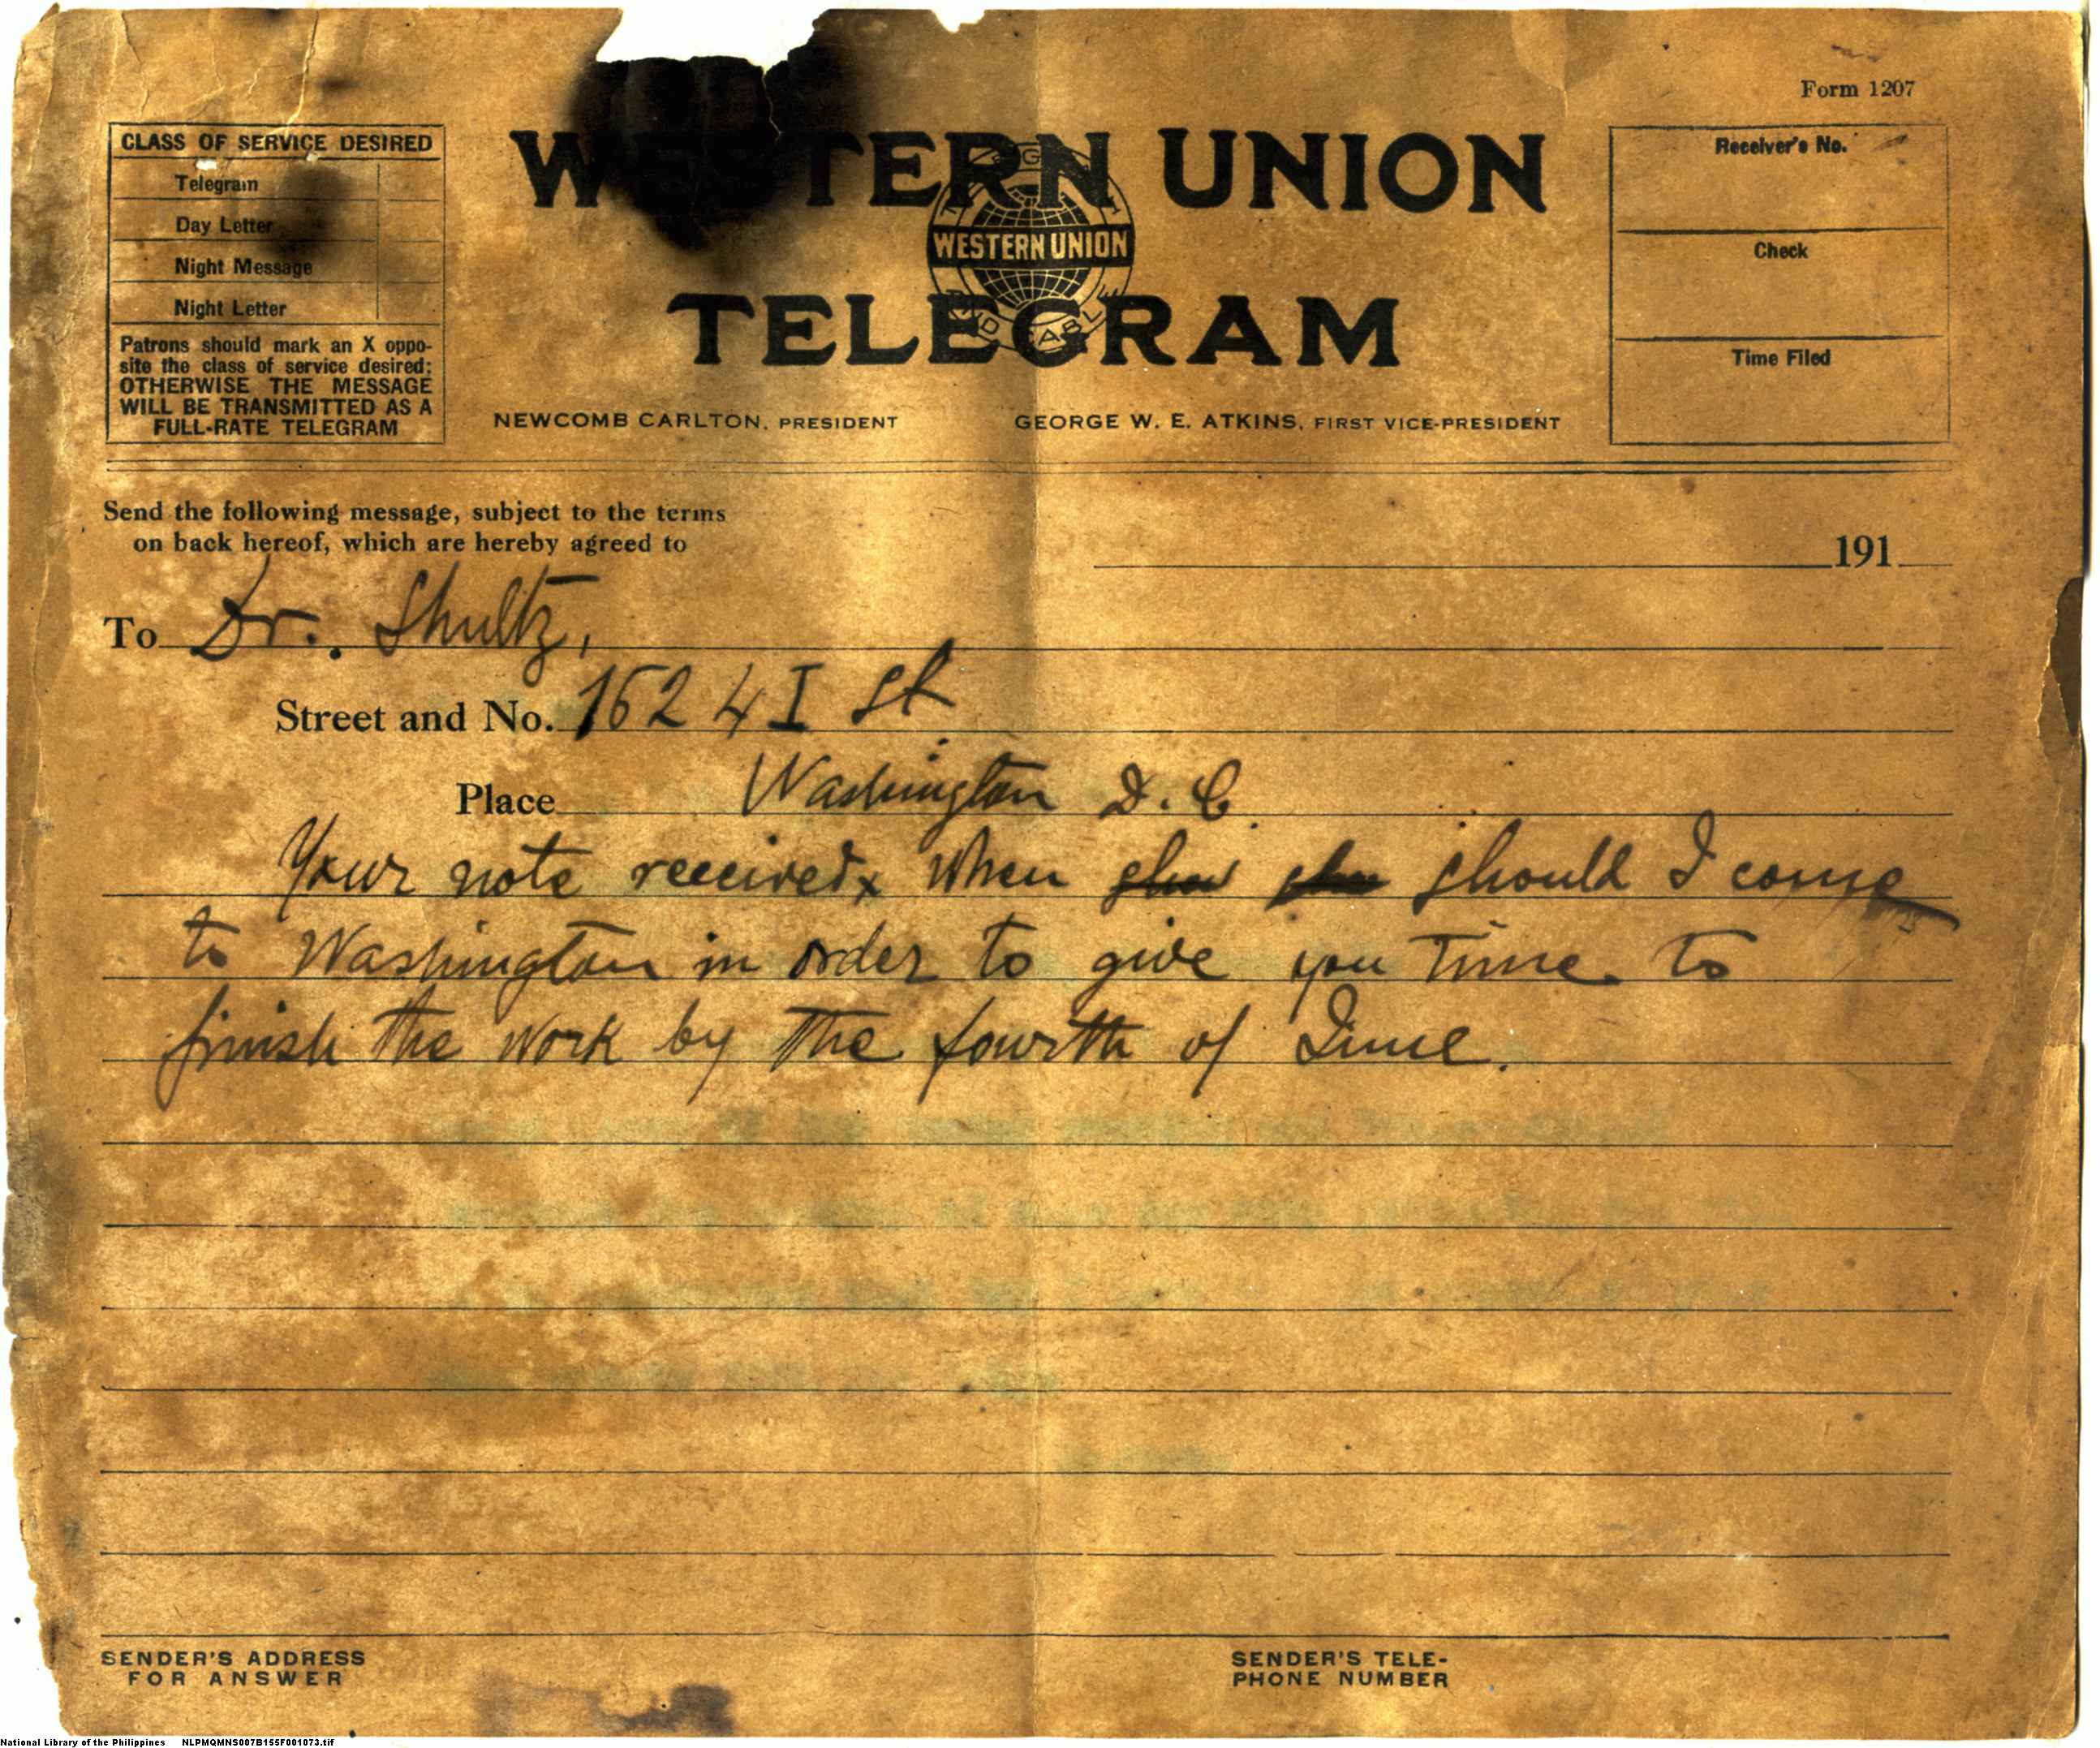 Form 1207
CLASS OF SERVICE DESIRED
Telegram
Day Letter
Night Message
Night Letter
Patrons should mark an X oppo-
site the class of service desired:
OTHERWISE THE MESSAGE
WILL BE TRANSMITTED AS A
FULL-RATE TELEGRAM
WESTERN UNION
WESTERN UNION
TELEGRAM
NEWCOMB CARLTON, PRESIDENT
GEORGE W. E. ATKINS, FIRST VICE-PRESIDENT
Receiver's No.
Check
Time Filed
Send the following message, subject to the terms
on back hereof, which are hereby agreed to
191
To Dr. Shultz,
Street and No. 1624 I St
Place Washington D. C.
Your note received x When should I come
to Washington in order to give you time to
finish the work by the fourth of June.
SENDER'S ADDRESS
FOR ANSWER
SENDER'S TELE-
PHONE NUMBER
National Library of the Philippines NLPMQMNS007B155F001073.tif